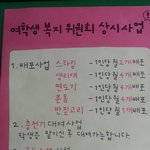 여학생 복지 위원회 상시사업
1. 배포사업 스타킹 - 1인당 월 2개 배포
생리대 - 1인당 월 4개 배포
면도기 - 1인당 월 1개 배포
콘돔 - 1인당 월 2개 배포
반짇고리 - 1인당 월 1개 배포
2. 충전기 대여사업
학생증 맡기신 후 대여가능합니다